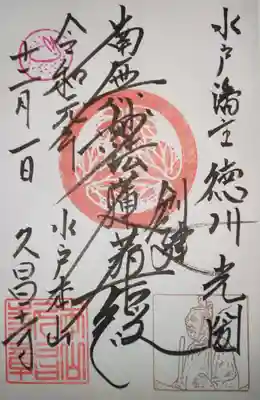 水戸藩主徳川光圀
創建
南無妙法蓮華経
水戸本山
久昌寺
令和元年
十二月一日